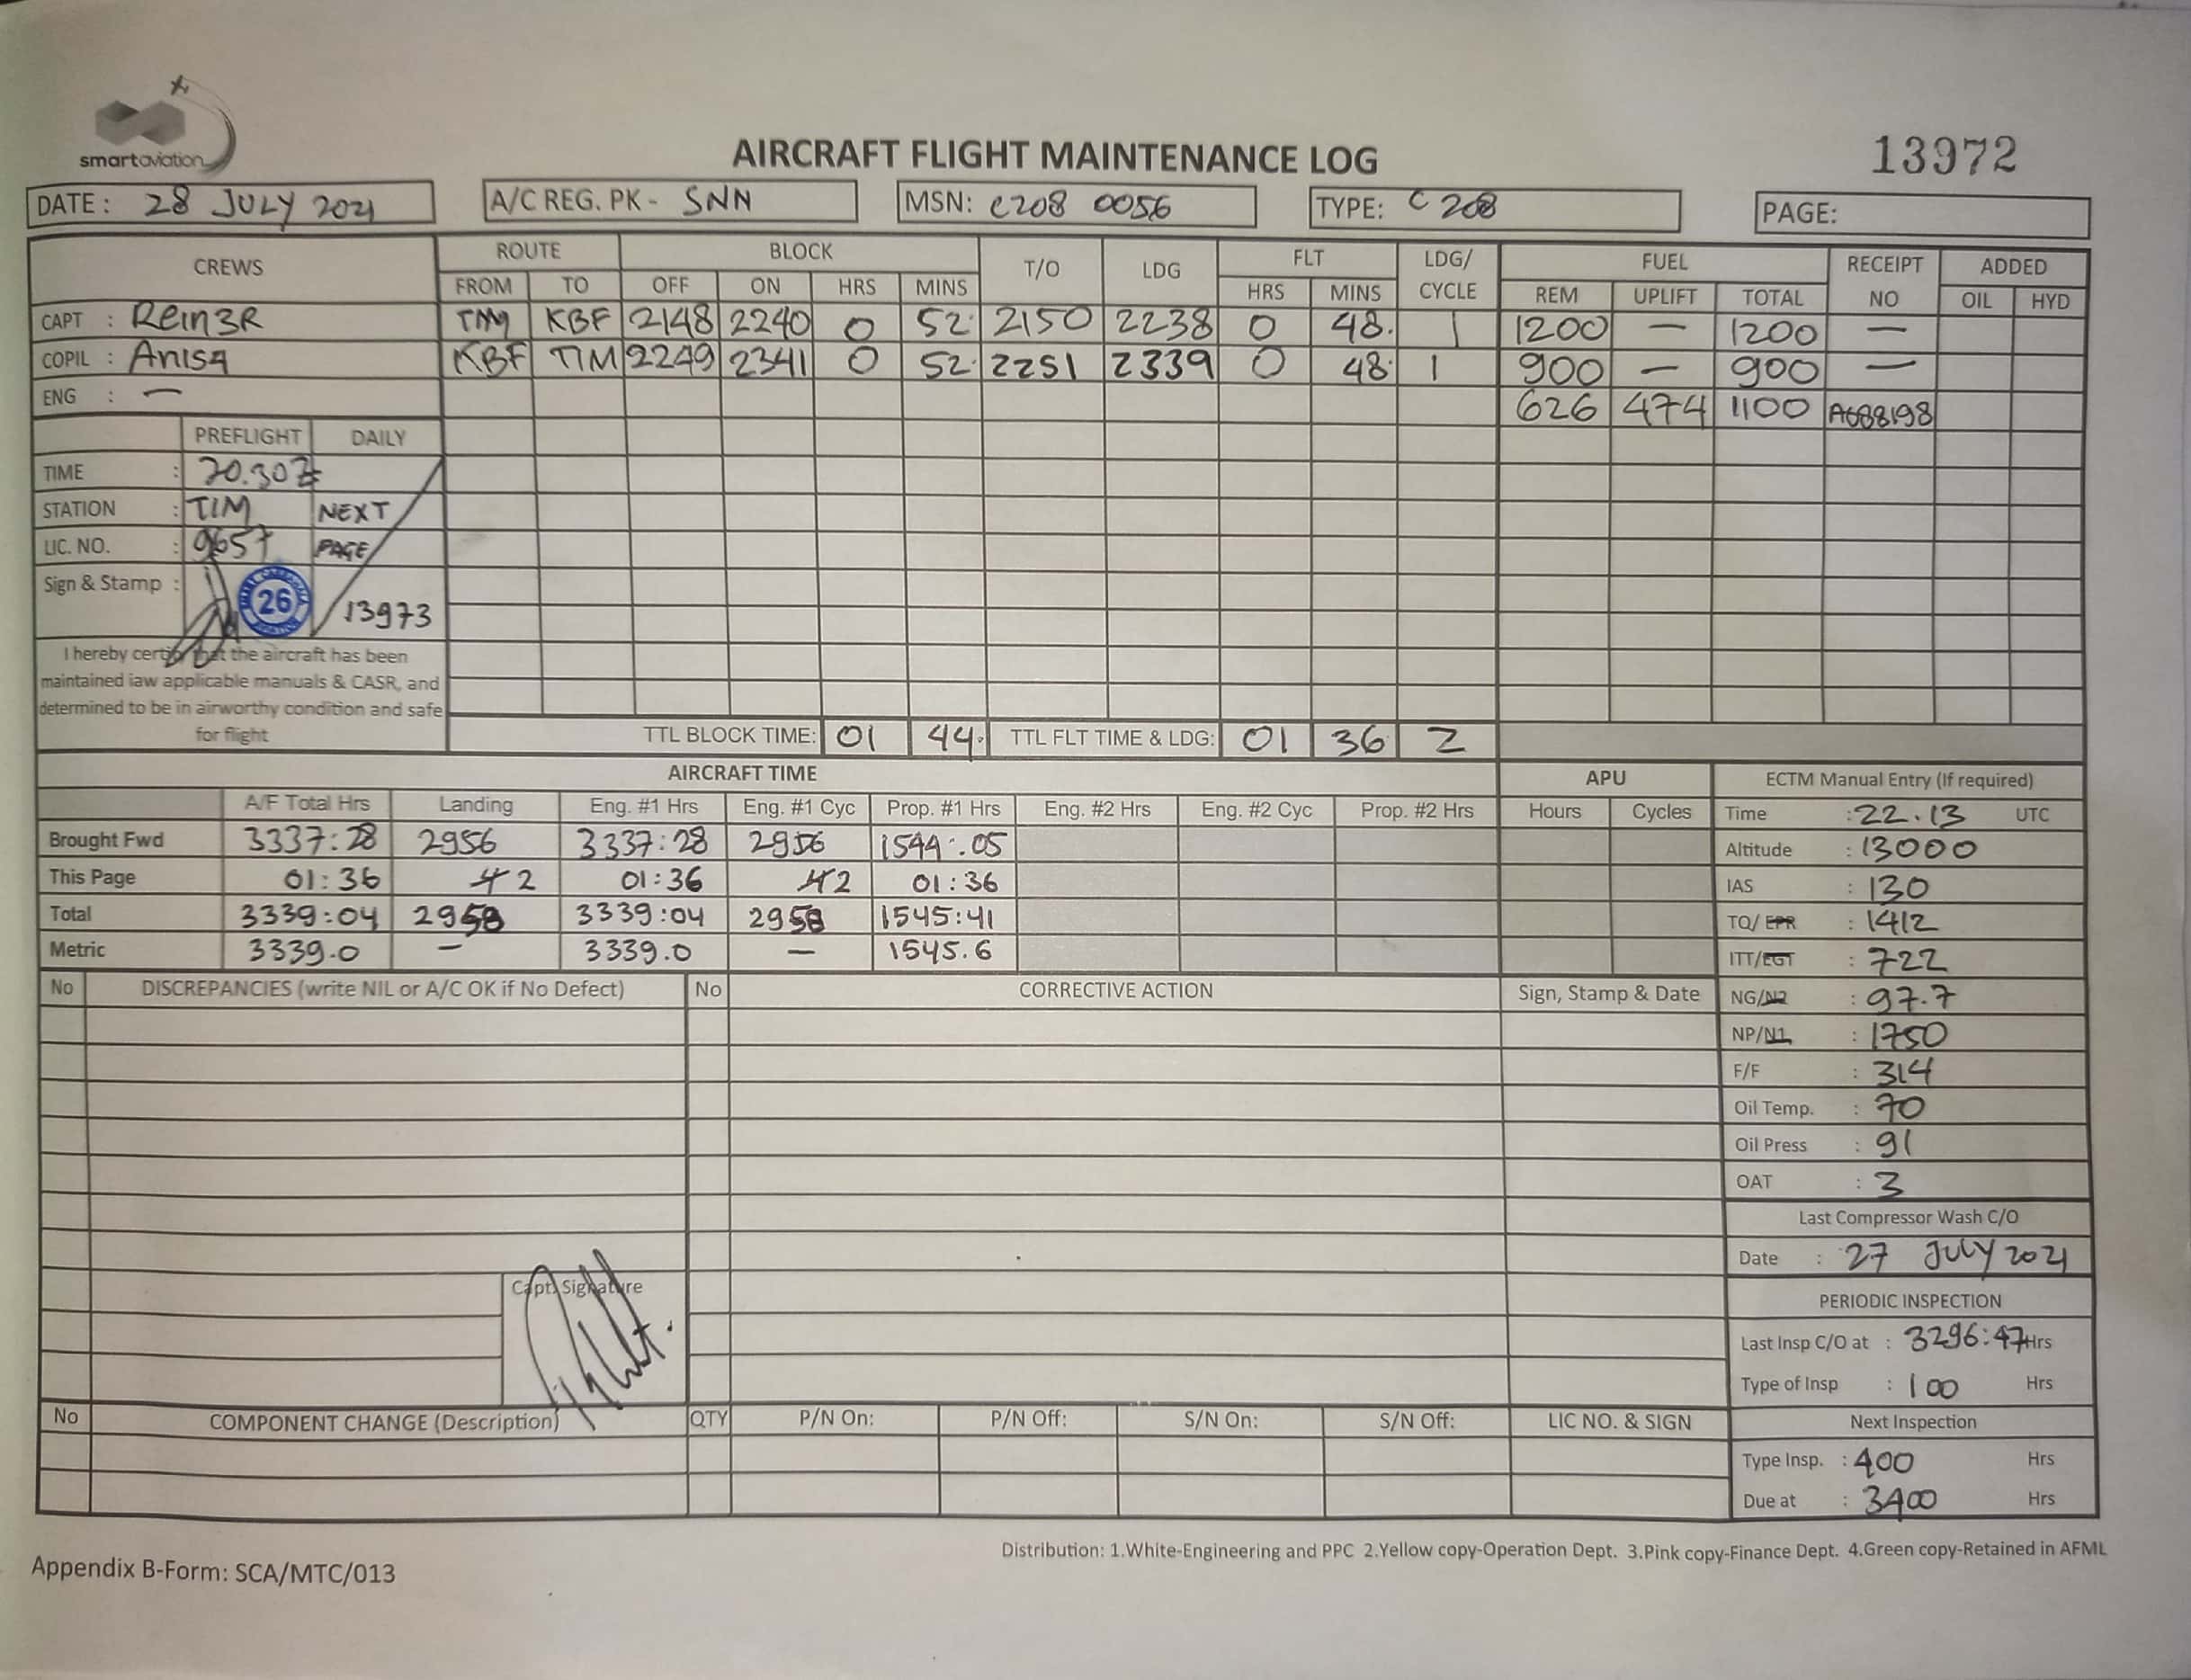 smartaviation
AIRCRAFT FLIGHT MAINTENANCE LOG
13972
DATE: 28 JULY 2021 A/C REG. PK - SNN MSN: C208 0056 TYPE: C 208 PAGE:
CREWS ROUTE BLOCK T/O LDG FLT LDG/ CYCLE FUEL RECEIPT NO ADDED
FROM TO OFF ON HRS MINS HRS MINS REM UPLIFT TOTAL OIL HYD
CAPT : Rein3R TIM KBF 2148 2240 0 52 2150 2238 0 48. 1 1200 — 1200 —
COPIL : Anisa KBF TIM 2249 2341 0 52 2251 2339 0 48 1 900 — 900 —
ENG : — 626 474 1100 A688198
PREFLIGHT DAILY
TIME : 20.30Z
STATION : TIM NEXT
LIC. NO. : 9657 PAGE
Sign & Stamp : 26 13973
I hereby certify that the aircraft has been
maintained iaw applicable manuals & CASR, and
determined to be in airworthy condition and safe
for flight
TTL BLOCK TIME: 01 44. TTL FLT TIME & LDG: 01 36 2
AIRCRAFT TIME APU ECTM Manual Entry (If required)
A/F Total Hrs Landing Eng. #1 Hrs Eng. #1 Cyc Prop. #1 Hrs Eng. #2 Hrs Eng. #2 Cyc Prop. #2 Hrs Hours Cycles Time : 22.13 UTC
Brought Fwd 3337:28 2956 3337:28 2956 1544:05 Altitude : 13000
This Page 01:36 2 01:36 2 01:36 IAS : 130
Total 3339:04 2958 3339:04 2958 1545:41 TQ/ EPR : 1412
Metric 3339.0 — 3339.0 — 1545.6 ITT/EGT : 722
No DISCREPANCIES (write NIL or A/C OK if No Defect) No CORRECTIVE ACTION Sign, Stamp & Date NG/N2 : 97.7
NP/N1 : 1750
F/F : 314
Oil Temp. : 70
Oil Press : 91
OAT : 3
Last Compressor Wash C/O
Date : 27 JULY 2021
Capt. Signature
PERIODIC INSPECTION
Last Insp C/O at : 3296:47 Hrs
Type of Insp : 100 Hrs
No COMPONENT CHANGE (Description) QTY P/N On: P/N Off: S/N On: S/N Off: LIC NO. & SIGN Next Inspection
Type Insp. : 400 Hrs
Due at : 3400 Hrs
Distribution: 1.White-Engineering and PPC 2.Yellow copy-Operation Dept. 3.Pink copy-Finance Dept. 4.Green copy-Retained in AFML
Appendix B-Form: SCA/MTC/013